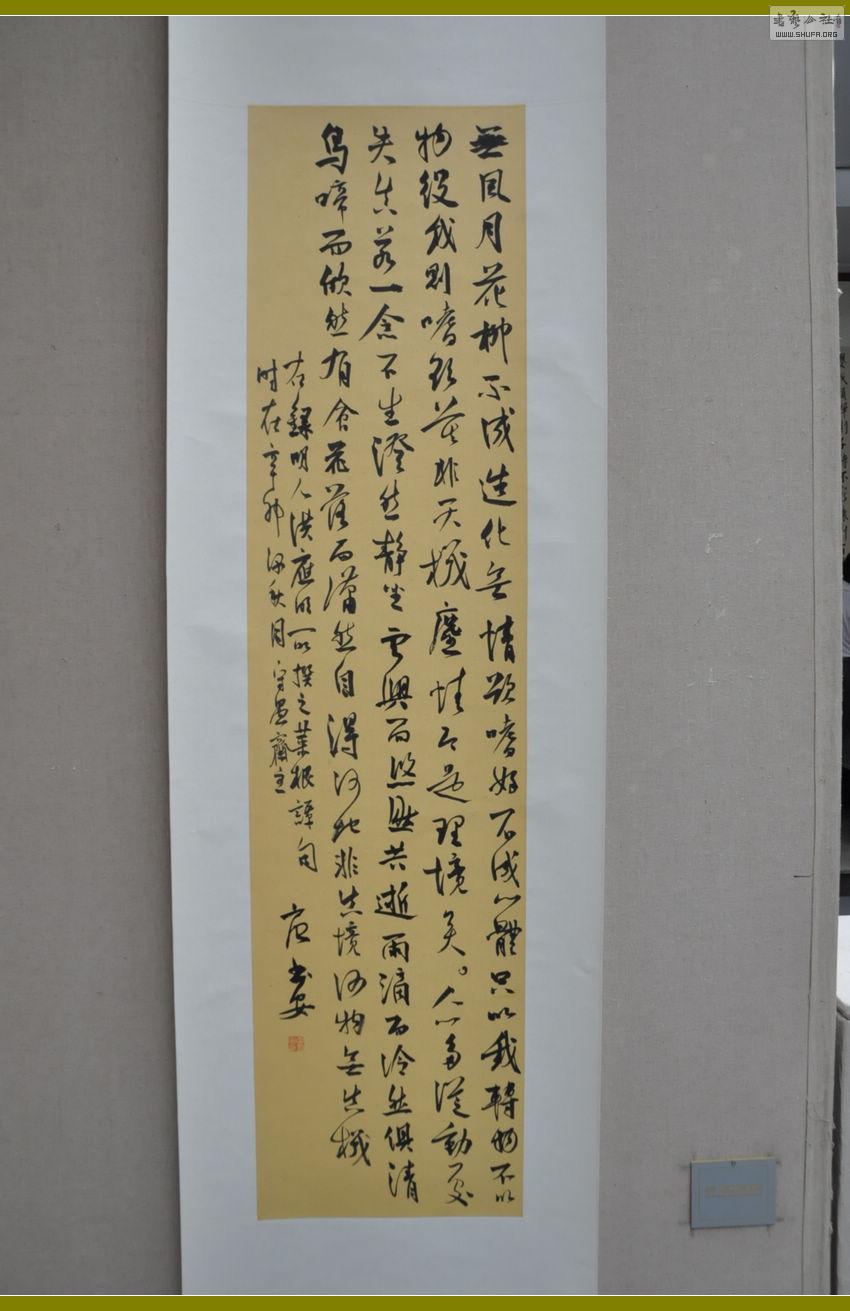 無風月花柳不成造化無情欲嗜好不成心體只以我轉物不以
物役我則嗜欲莫非天機塵情即是理境矣。人心多從動處
失真若一念不生澄然靜坐雲興而悠然共逝雨滴而泠然俱清
鳥啼而欣然有會花落而瀟然自得何地非真境何物無真機
右錄明人洪應明所撰之菜根譚句
时在辛卯仲秋月守愚齋主
WWW.SHUFA.ORG